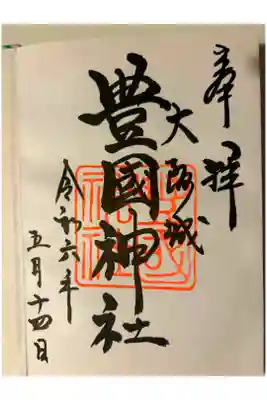 奉拝
大阪城
豊國神社
令和六年
五月十四日